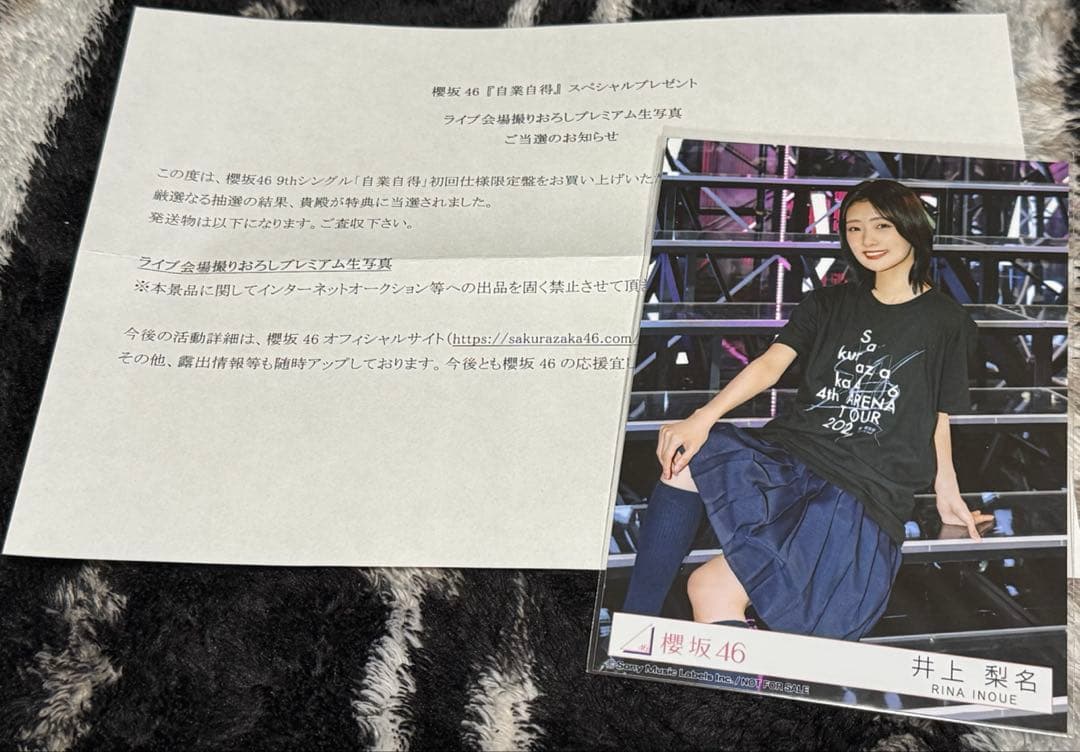 櫻坂46『自業自得』スペシャルプレゼント
ライブ会場撮りおろしプレミアム生写真
ご当選のお知らせ
この度は、櫻坂46 9thシングル「自業自得」初回仕様限定盤をお買い上げいた
厳選なる抽選の結果、貴殿が特典に当選されました。
発送物は以下になります。ご査収下さい。
ライブ会場撮りおろしプレミアム生写真
※本景品に関してインターネットオークション等への出品を固く禁止させて頂
今後の活動詳細は、櫻坂46オフィシャルサイト(https://sakurazaka46.com/
その他、露出情報等も随時アップしております。今後とも櫻坂46の応援宜
S
a
kuraza
ka46
4th ARENA
TOUR
202
櫻坂46
©Sony Music Labels Inc./NOT FOR SALE
井上 梨名
RINA INOUE